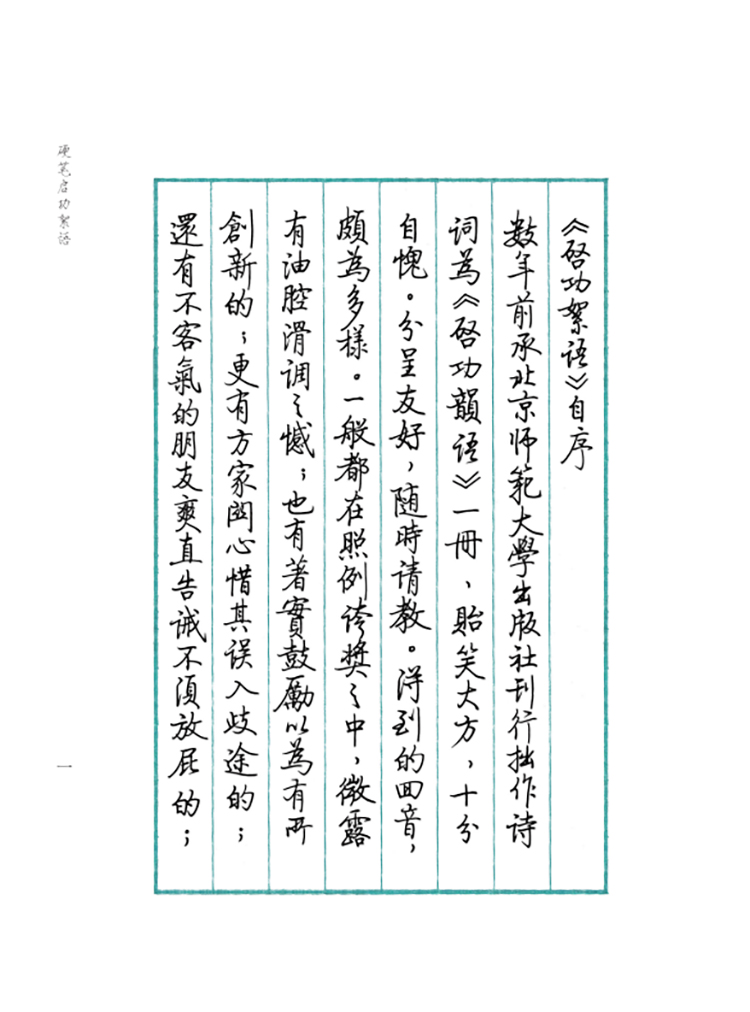 《啓功絮語》自序
数年前承北京师範大學出版社刊行拙作诗
词為《啓功韻语》一冊，貽笑大方，十分
自愧。分呈友好，随時请教。得到的回音，
頗為多樣。一般都在照例誇獎之中，微露
有油腔滑调之憾；也有著實鼓勵以為有所
創新的；更有方家関心惜其误入歧途的；
還有不客氣的朋友爽直告诫不须放屁的；
硬笔启功絮语
一